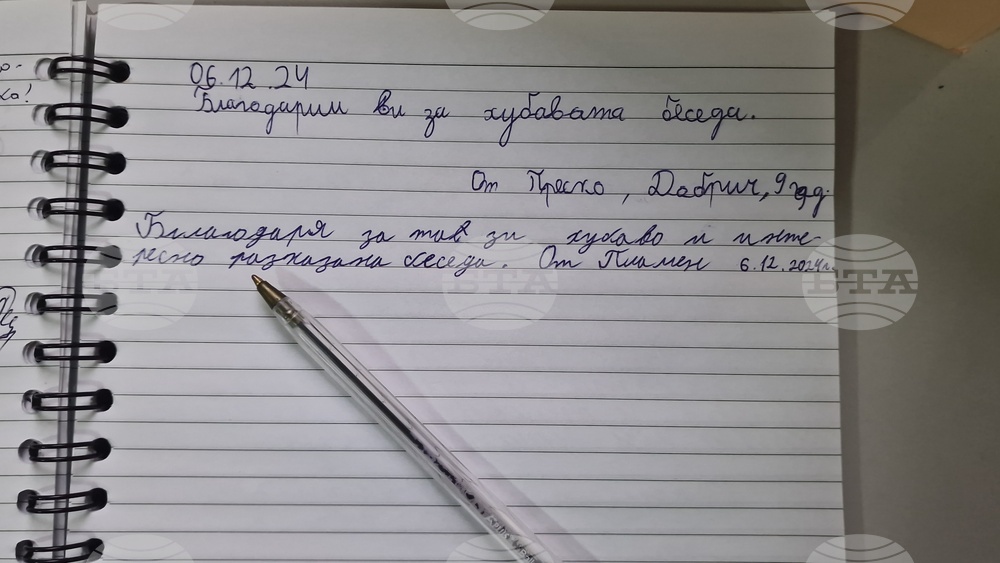 о-
ха!
06.12.24
Благодарим ви за хубавата беседа.
От Преско, Добрич, 9 год.
Билагодаря за тав зи хухаво и инте-
ресно разказана беседа. От Пламен 6.12.2024г.
БТА
БТА
БТА